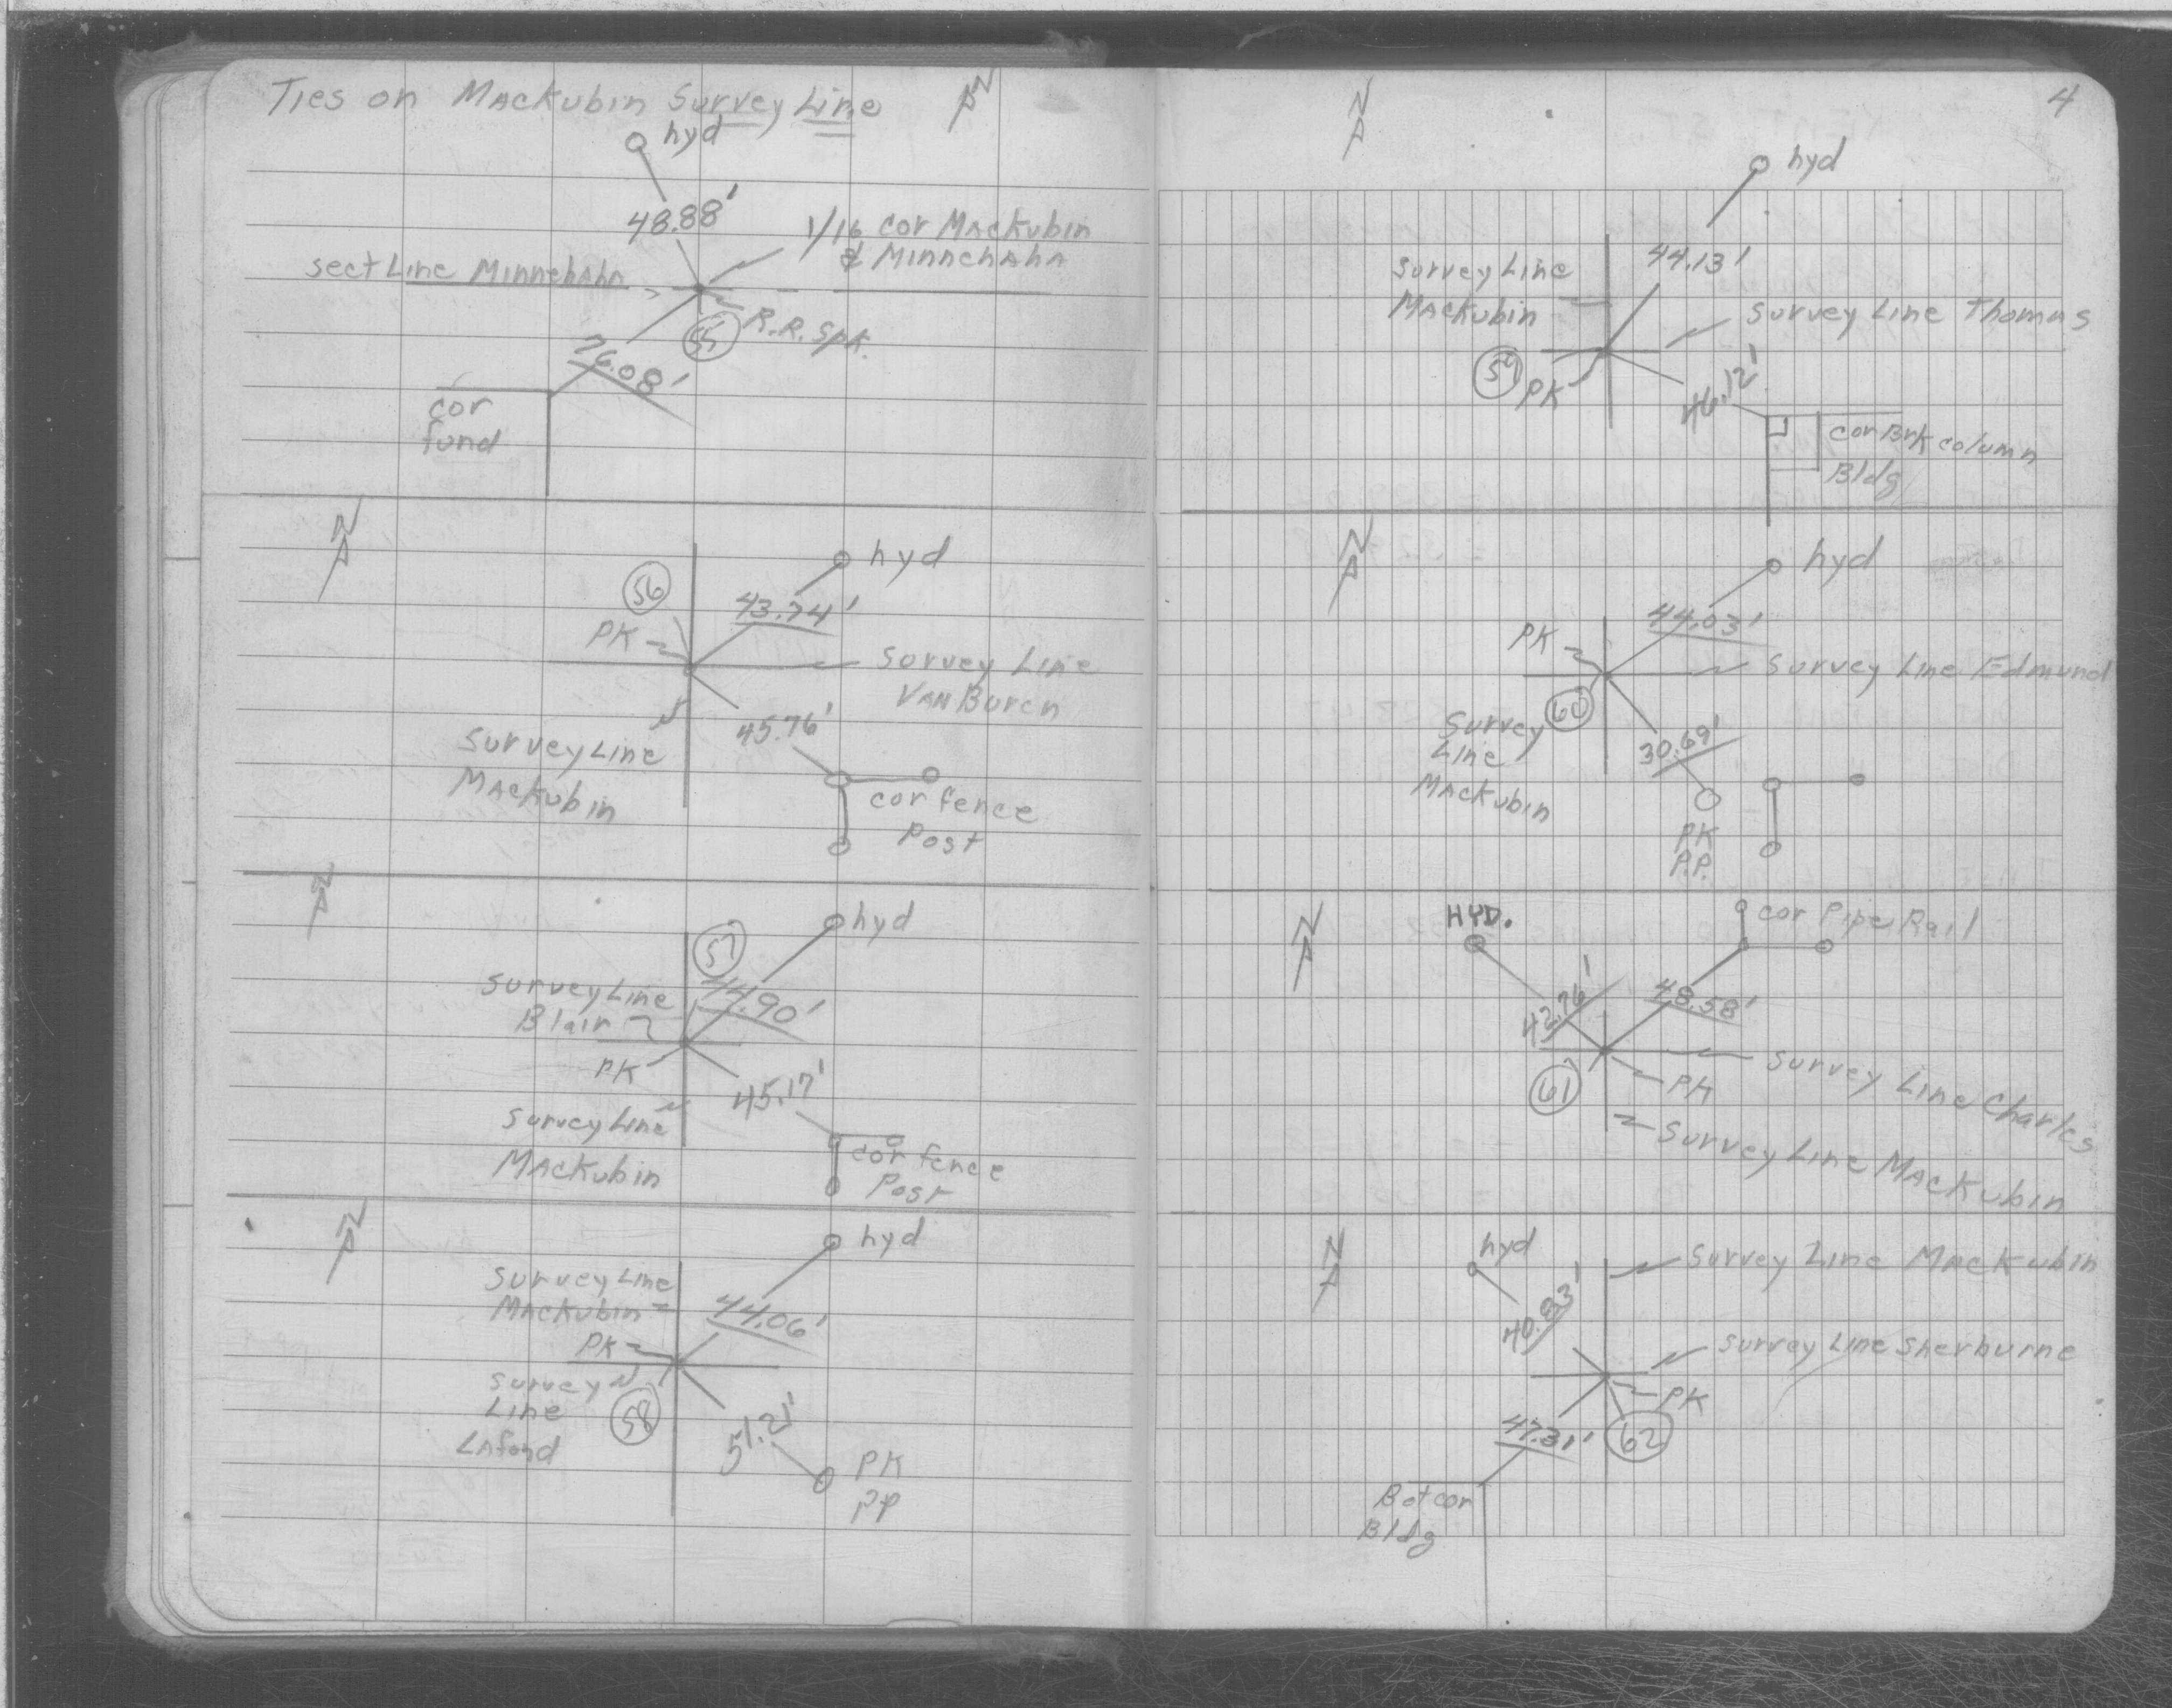 Ties on Mackubin Survey Line
N
hyd
48.88'
1/16 cor Mackubin
& Minnehaha
sect Line Minnehaha
R.R. Spk.
55
76.08'
cor
fund
N
hyd
56
43.74'
PK
Survey Line
Van Buren
45.76'
Survey Line
Mackubin
cor fence
Post
N
hyd
57
Survey Line
Blair
44.90'
PK
45.17'
Survey Line
Mackubin
cor fence
Post
N
hyd
Survey Line
Mackubin
44.06'
PK
Survey
Line
Lafond
58
51.21'
PK
PP
4
N
hyd
44.13'
Survey Line
Mackubin
Survey Line Thomas
59
PK
46.12'
cor Brk column
Bldg
N
hyd
44.03'
PK
Survey Line Edmund
60
Survey
Line
Mackubin
30.69'
PK
P.P.
N
HYD.
cor Pipe Rail
42.76'
48.58'
61
PK
Survey Line Charles
Survey Line Mackubin
N
hyd
Survey Line Mackubin
40.83'
Survey Line Sherburne
PK
47.31'
62
Bot cor
Bldg